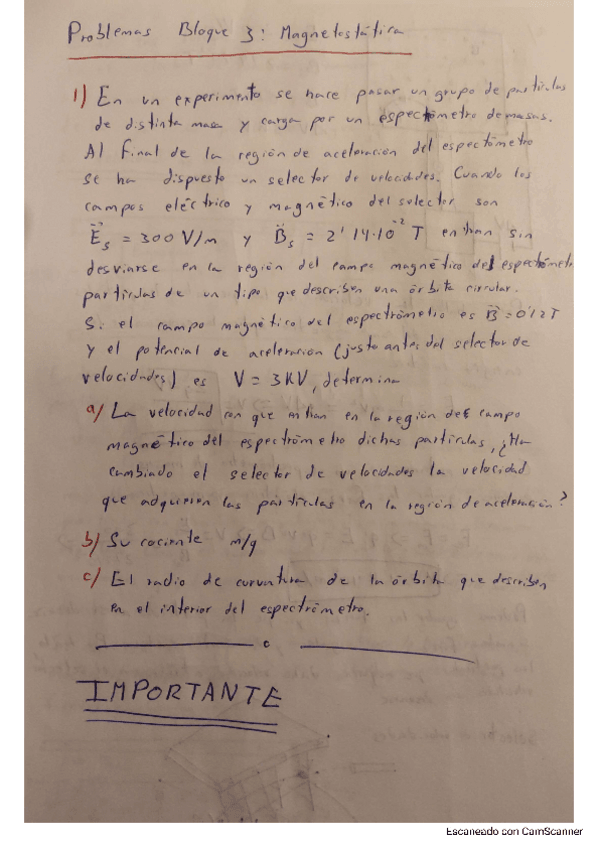 Problemas Bloque 3: Magnetostática
1) En un experimento se hace pasar un grupo de partículas
de distinta masa y carga por un espectómetro de masas.
Al final de la región de aceleración del espectómetro
se ha dispuesto un selector de velocidades. Cuando los
campos eléctrico y magnético del selector son
E⃗s = 300 V/m y B⃗s = 2'14·10⁻² T entran sin
desviarse en la región del campo magnético del espectómetro
partículas de un tipo que describen una órbita circular.
Si el campo magnético del espectrómetro es B⃗ = 0'12T
y el potencial de aceleración (justo antes del selector de
velocidades) es V = 3KV, determina
a) La velocidad con que entran en la región del campo
magnético del espectrómetro dichas partículas, ¿Ha
cambiado el selector de velocidades la velocidad
que adquieren las partículas en la región de aceleración?
b) Su cociente m/q
c) El radio de curvatura de la órbita que describen
en el interior del espectrómetro.
IMPORTANTE
Escaneado con CamScanner